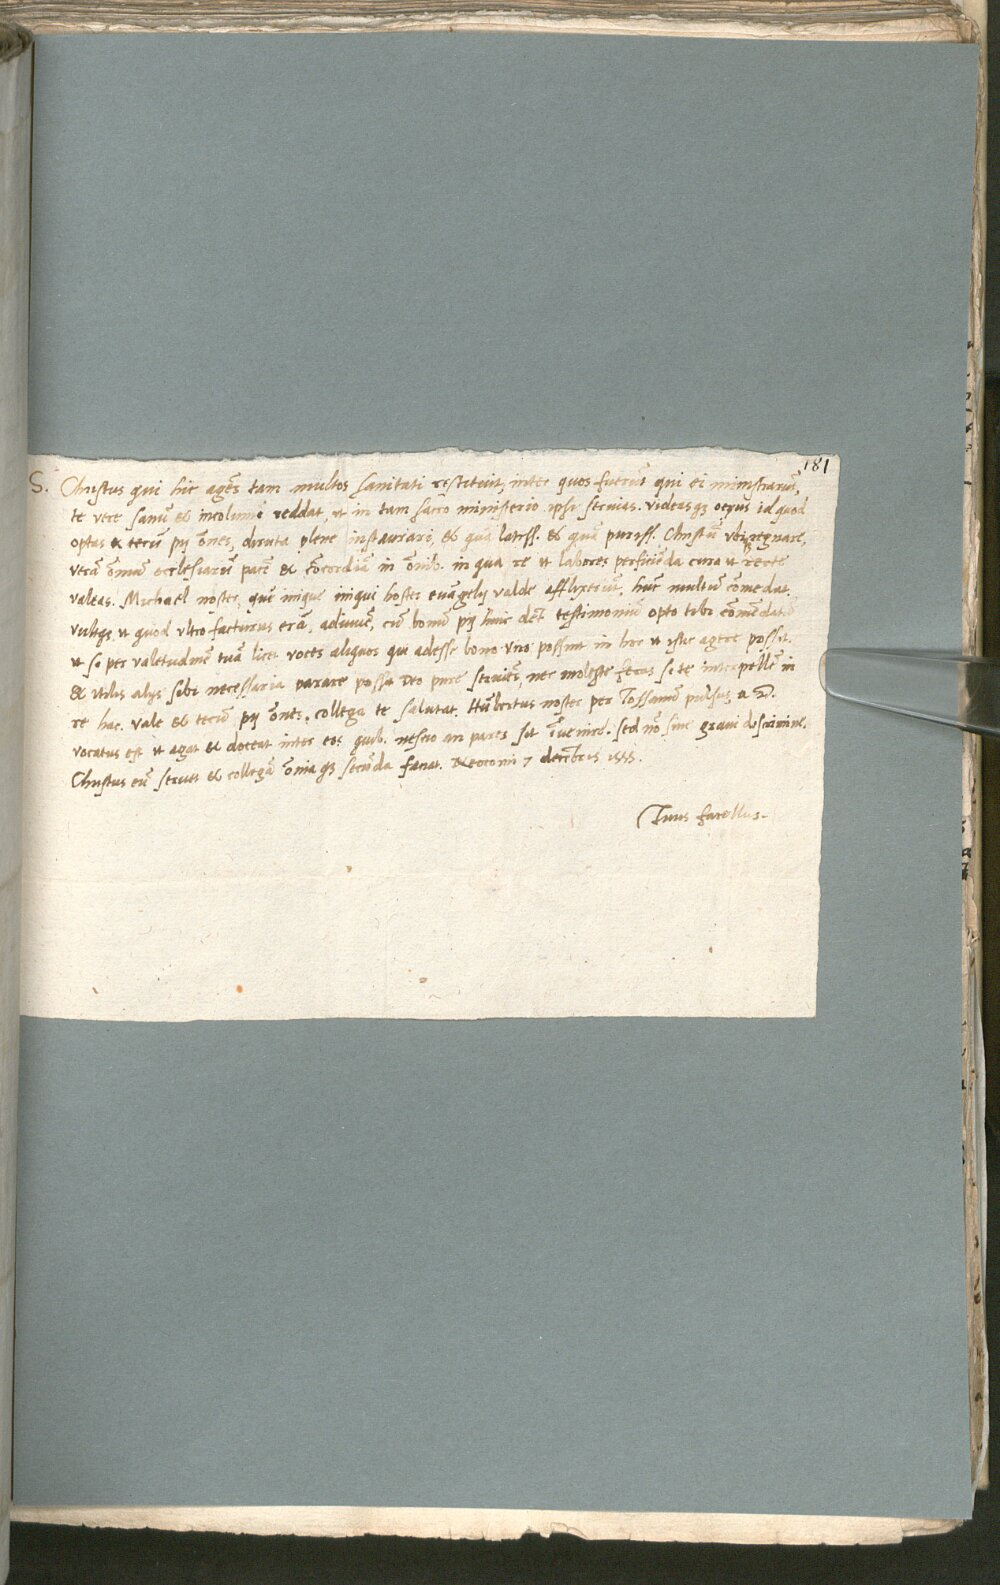 181
S. Christus qui hic agēs tam multos sanitati restituit, inter quos fuerūt qui ei ministrarūt,
te vere sanū & incolumē reddat, ut in tam sacro ministerio ipsi servias. videasq3 ocyus id quod
optas & tecū pij ōnes, diruta plene instaurari, & quā latiss. & quā puriss. Christū ubiq3 regnare,
verā ōniū ecclesiarū pacē & cōcordiā in ōnib. in qua re ut labores perficiēda cura ut recte
valeas. Michael noster, quē inique iniqui hostes euāgelij valde afflixerūt, hūc multū cōmēdat.
ut quod ultro facturus erā, adiuuē, cū bonū pij huic dēt testimoniū opto tibi cōmēdatū
ut si per valetudinē tuā licet voces aliquos qui adesse bono viro possint in hoc ut istic agere possit.
& utilis alijs sibi necessaria parare possit deo pure seruiēs, nec moleste feras si te interpellē in
re hac. Vale & tecū pij ōnes. collega te salutat. Hūbertus noster per Tossanū pulsus a D.
vocatus est ut agat & doceat inter eos quib. nescio an pares sit īuenire. sed nō sine graui discrimine.
Christus eū seruet & collegā ōniaq3 secūda faxit. Neocomi 7 decēbris 1555.
Tuus farellus.